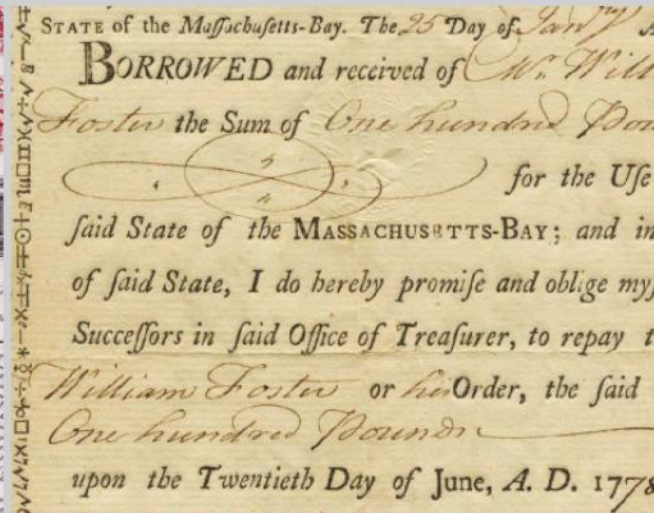 STATE of the Maſſachuſetts-Bay. The 25 Day of Janʸ A
BORROWED and received of Mr. Will
Foster the Sum of One hundred Pou
for the Uſe
ſaid State of the MASSACHUSETTS-BAY; and in
of ſaid State, I do hereby promiſe and oblige myſ
Succeſſors in ſaid Office of Treaſurer, to repay t
William Foster or his Order, the ſaid
One hundred Pounds
upon the Twentieth Day of June, A. D. 1778